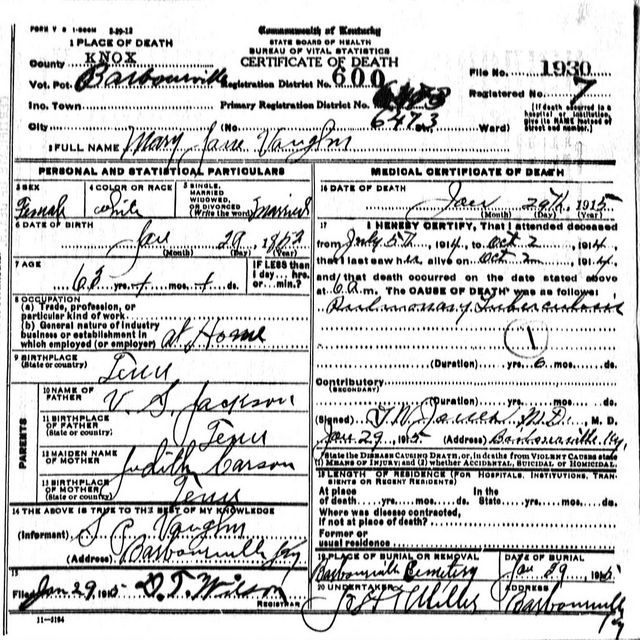 FORM V S 1-500M 3-29-13
Commonwealth of Kentucky
STATE BOARD OF HEALTH
BUREAU OF VITAL STATISTICS
CERTIFICATE OF DEATH
1 PLACE OF DEATH
County KNOX
Vot. Pct. Barbourville
Registration District No. 600
File No. 1930
Ino. Town
Primary Registration District No. 6473
Registered No. 7
City (No. St., Ward)
[If death occurred in a hospital or institution, give its NAME instead of street and number.]
2 FULL NAME Mary Jane Vaughn
PERSONAL AND STATISTICAL PARTICULARS
3 SEX Female
4 COLOR OR RACE White
5 SINGLE, MARRIED WIDOWED, OR DIVORCED (Write the word) Married
6 DATE OF BIRTH Jan 29, 1853
(Month) (Day) (Year)
7 AGE 63 yrs. mos. ds.
IF LESS than 1 day... hrs. or... min.?
8 OCCUPATION
(a) Trade, profession, or particular kind of work
(b) General nature of industry business or establishment in which employed (or employer) at Home
9 BIRTHPLACE (State or country) Tenn
PARENTS
10 NAME OF FATHER V. S. Jackson
11 BIRTHPLACE OF FATHER (State or country) Tenn
12 MAIDEN NAME OF MOTHER Judith Carson
13 BIRTHPLACE OF MOTHER (State or country) Tenn
14 THE ABOVE IS TRUE TO THE BEST OF MY KNOWLEDGE
(Informant) S P Vaughn
(Address) Barbourville Ky
15
Filed Jan 29 1915 D. T. Wilson
REGISTRAR
11-3184
MEDICAL CERTIFICATE OF DEATH
16 DATE OF DEATH Jan 29th, 1915
(Month) (Day) (Year)
17 I HEREBY CERTIFY, That I attended deceased
from July 5th, 1914, to Oct 2, 1914,
that I last saw her alive on Oct 2, 1914,
and that death occurred on the date stated above
at 6 a.m. The CAUSE OF DEATH was as follows:
Pulmonary Tuberculosis
1
(Duration) yrs. 6 mos. ds.
Contributory
(SECONDARY)
(Duration) yrs. mos. ds.
(Signed) M.D., M. D.
Jan 29, 1915 (Address) Barbourville Ky.
State the DISEASE CAUSING DEATH, or, in deaths from VIOLENT CAUSES state (1) MEANS OF INJURY; and (2) whether ACCIDENTAL, SUICIDAL or HOMICIDAL.
18 LENGTH OF RESIDENCE (FOR HOSPITALS, INSTITUTIONS, TRANSIENTS OR RECENT RESIDENTS)
At place of death yrs. mos. ds. In the State yrs. mos. ds.
Where was disease contracted,
if not at place of death?
Former or
usual residence
19 PLACE OF BURIAL OR REMOVAL Barbourville Cemetery
DATE OF BURIAL Jan 29 1915
20 UNDERTAKER Miller
ADDRESS Barbourville Ky